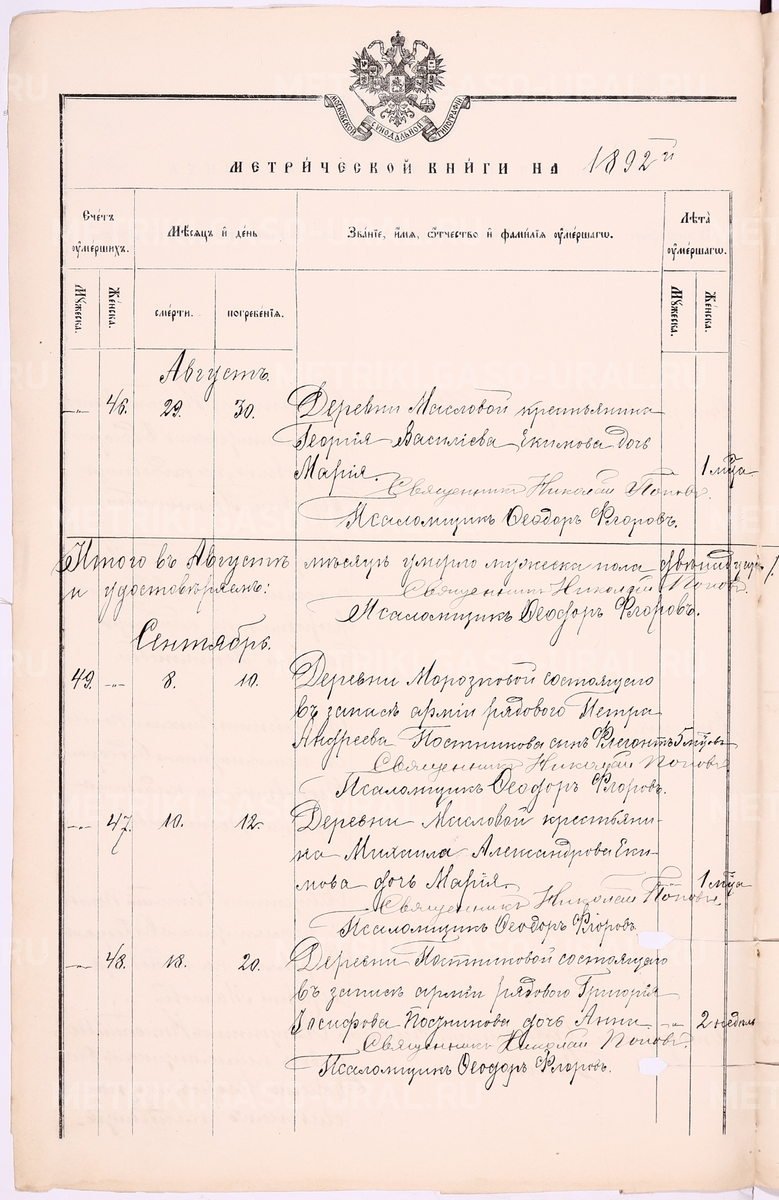 МОСКОВСКОЙ СѴНОДАЛЬНОЙ ТИПОГРАФІИ
МЕТРИЧЕСКОЙ КНИГИ НА 1892й
Счетъ умершихъ.
Мѣсяцъ и день
Званіе, имя, отчество и фамилія умершаго.
Лѣта умершаго.
Мужеска. Женска.
смерти. погребенія.
Мужеска. Женска.
Августъ.
„ 46. 29. 30. Деревни Масловой крестьянина
Георгія Василіева Екимова дочь
Марія. 1 мца
Священникъ Николай Поповъ.
Псаломщикъ Ѳеодоръ Флоровъ.
Итого въ Августѣ мѣсяцѣ умерло мужеска пола двѣнадцать
и удостовѣряемъ: Священникъ Николай Поповъ.
Псаломщикъ Ѳеодоръ Флоровъ.
Сентябрь.
49. „ 8. 10. Деревни Морозковой состоящаго
въ запасѣ арміи рядового Петра
Андреева Постникова сынъ Флегонтъ 5 мцевъ
Священникъ Николай Поповъ
Псаломщикъ Ѳеодоръ Флоровъ.
„ 47. 10. 12. Деревни Масловой крестьяни-
на Михаила Александрова Еки-
мова дочь Марія. 1 мца
Священникъ Николай Поповъ.
Псаломщикъ Ѳеодоръ Флоровъ
„ 48. 18. 20. Деревни Постниковой состоящаго
въ запасѣ арміи рядового Григорія
Іосифова Постникова дочь Анна „ 2 недѣли
Священникъ Николай Поповъ.
Псаломщикъ Ѳеодоръ Флоровъ.
METRIKI.GASO-URAL.RU